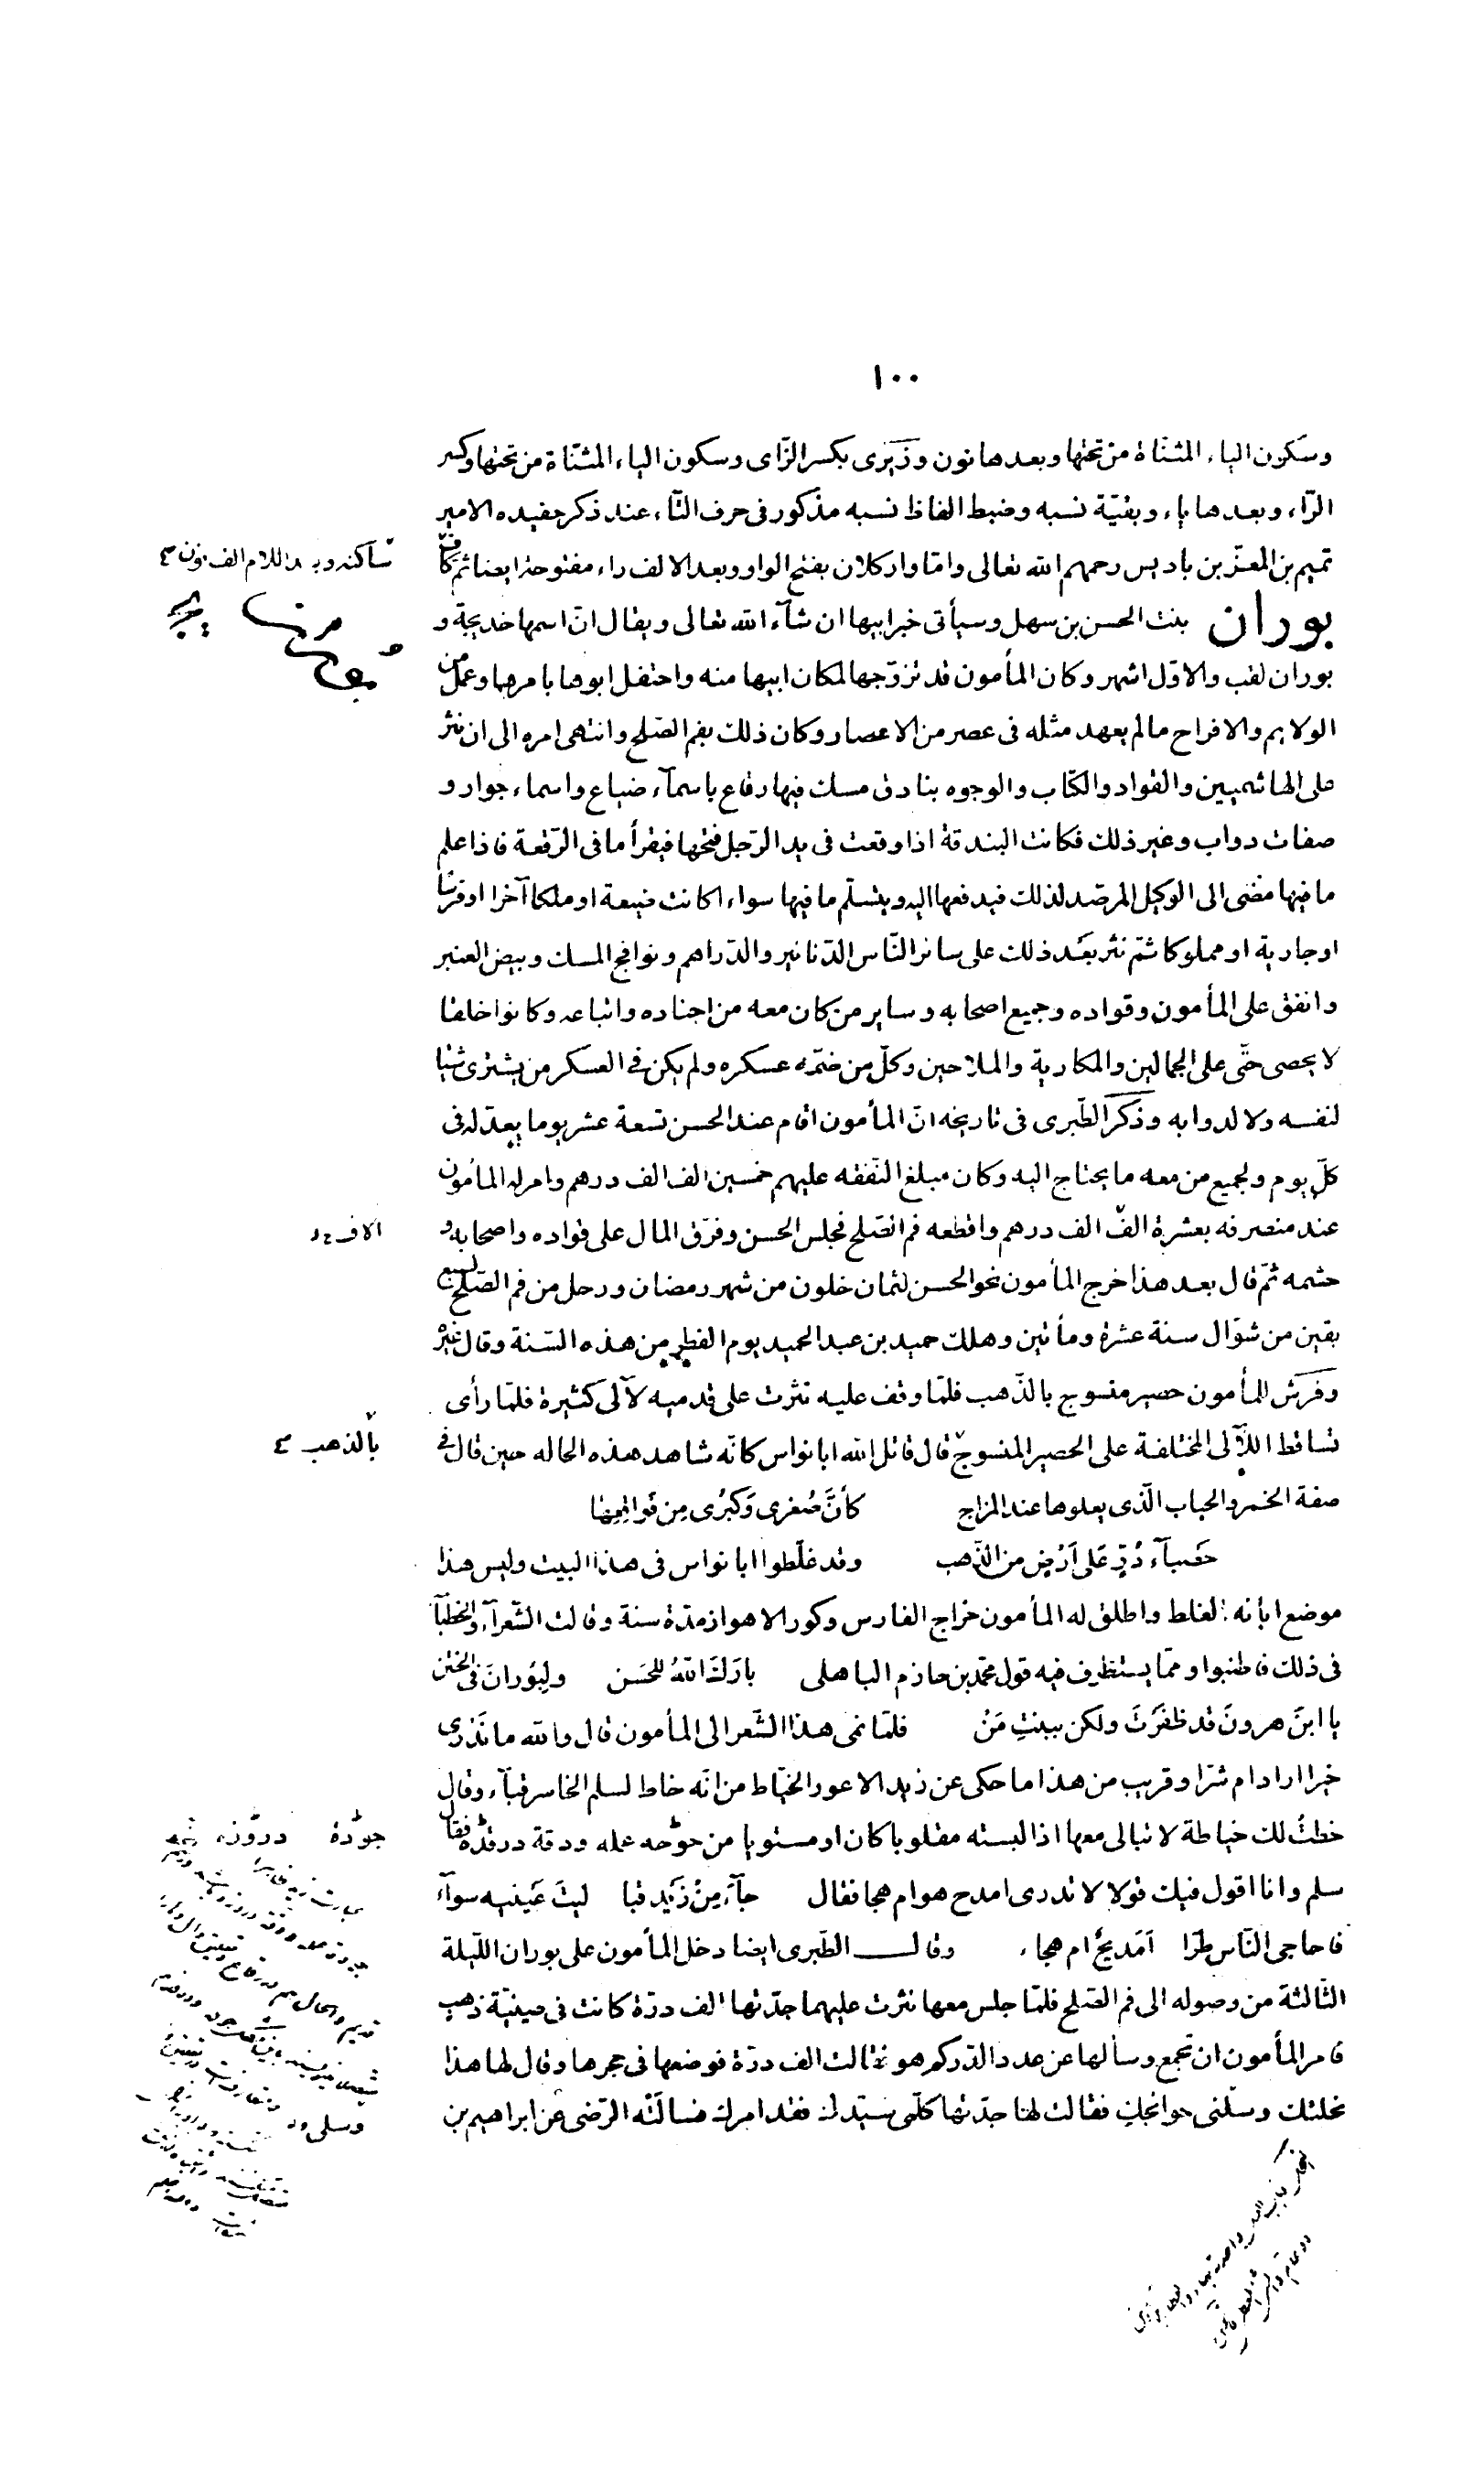 ١٠٠
وسكون الياء المثنّاة من تحتها وبعدها نون وزيرى بكسر الزّاى وسكون الياء المثنّاة من تحتها وكسر
الرّاء وبعدها ياء وبقيّة نسبه وضبط الفاظ نسبه مذكور فى حرف التّاء عند ذكر حفيده الامير
تميم بن المعزّ بن باديس رحمهم الله تعالى وامّا واركلان بفتح الواو وبعد الالف راء مفتوحة ايضا ثم كاف
ساكنه وبعد اللام الف نون
بوران بنت الحسن بن سهل وسيأتى خبر ابيها ان شآء الله تعالى ويقال انّ اسمها خديجة و
بوران لقب والاوّل اشهر وكان المأمون قد تزوّجها لمكان ابيها منه واحتفل ابوها بامرها وعمل من
الولايم والافراح ما لم يعهد مثله فى عصر من الاعصار وكان ذلك بفم الصّلح وانتهى امره الى ان نثر
على الهاشميين والقواد والكتّاب والوجوه بنادق مسك فيها رقاع باسمآء ضياع واسماء جوار و
صفات دواب وغير ذلك فكانت البندقة اذا وقعت فى يد الرّجل فتحها فيقرأ ما فى الرّقعة فاذا علم
ما فيها مضى الى الوكيل المرصّد لذلك فيدفعها اليه ويتسلّم ما فيها سواء كانت ضيعة او ملكا آخر او فرسا
او جارية او مملوكا ثمّ نثر بعد ذلك على سائر النّاس الدّنانير والدّراهم ونوافج المسك وبيض العنبر
وانفق على المأمون وقواده وجميع اصحابه وساير من كان معه من اجناده واتباعه وكانوا خلقا
لا يحصى حتّى على الجمالين والمكارية والملاحين وكلّ من ضمّه عسكره ولم يكن فى العسكر من يشترى شيئا
لنفسه ولا لدوابه وذكر الطّبرى فى تاريخه انّ المأمون اقام عند الحسن تسعة عشر يوما يعدّ له فى
كلّ يوم ولجميع من معه ما يحتاج اليه وكان مبلغ النّفقه عليهم خمسين الف الف درهم وامر له المأمون
عند منصرفه بعشرة الف الف درهم واقطعه فم الصّلح فجلس الحسن وفرّق المال على قواده واصحابه و
الاف
حشمه ثمّ قال بعد هذا خرج المأمون نحو الحسن لثمان خلون من شهر رمضان ورحل من فم الصّلح لسبع
بقين من شوّال سنة عشرة ومأتين وهلك حميد بن عبد الحميد يوم الفطر من هذه السّنة وقال غيره
وفرش للمأمون حصير منسوج بالذّهب فلمّا وقف عليه نثرت على قدميه لآلى كثيرة فلمّا رأى
تساقط اللآلى المختلفة على الحصير المنسوج قال قاتل الله ابا نواس كانّه شاهد هذه الحاله حين قال فى
بالذهب
صفة الخمر والحباب الّذى يعلوها عند المزاج كأنّ صُغرى وَكبُرى مِن فَواقِعِها
حَصبآء دُرٍّ عَلى اَرْضٍ من الذّهب وقد غلّطوا ابا نواس فى هذا البيت وليس هذا
موضع ابانه الغلط واطلق له المأمون خراج الفارس وكور الاهواز مدّة سنة وقالت الشّعرآء والخطبآء
فى ذلك فاطنبوا وممّا يستظرف فيه قول محمّد بن حازم الباهلى باركَ اللهُ لِلحَسَن ولِبُورانَ فى الختن
يا ابنَ هرونَ قد ظفَرْتَ ولكن ببنتِ مَنْ فلمّا نمى هذا الشّعر الى المأمون قال والله ما ندرى
خيرا اراد ام شرّا وقريب من هذا ما حكى عن زيد الاعور الخيّاط من انّه خاط لسلم الخاسر قبآء وقال
خطتُ لك خياطة لا تبالى معها اذا لبسته مقلوبا كان او مستويا من جوّده عمله ودقة درزه فقال
جودة درزه
سلم وانا اقول فيك قولا لا تدرى امدح هو ام هجا فقال جآءَ مِنْ زَيد قبا ليتَ عَينيه سوآء
فاحاجى النّاس طرّا اَمَديحٌ ام هجاء وقال الطّبرى ايضا دخل المأمون على بوران اللّيلة
الثّالثة من وصوله الى فم الصّلح فلمّا جلس معها نثرت عليهما جدّتها الف درّة كانت فى صينيّة ذهب
فامر المأمون ان تجمع وسألها عن عدد الدّر كم هو فقالت الف درّة فوضعها فى حجرها وقال لها هذا
نحلتك وسلّنى حوائجك فقالت لها جدّتها كلّمى سيّدك فقد امرك فسألَتْه الرّضى عن ابراهيم بن
وسلى